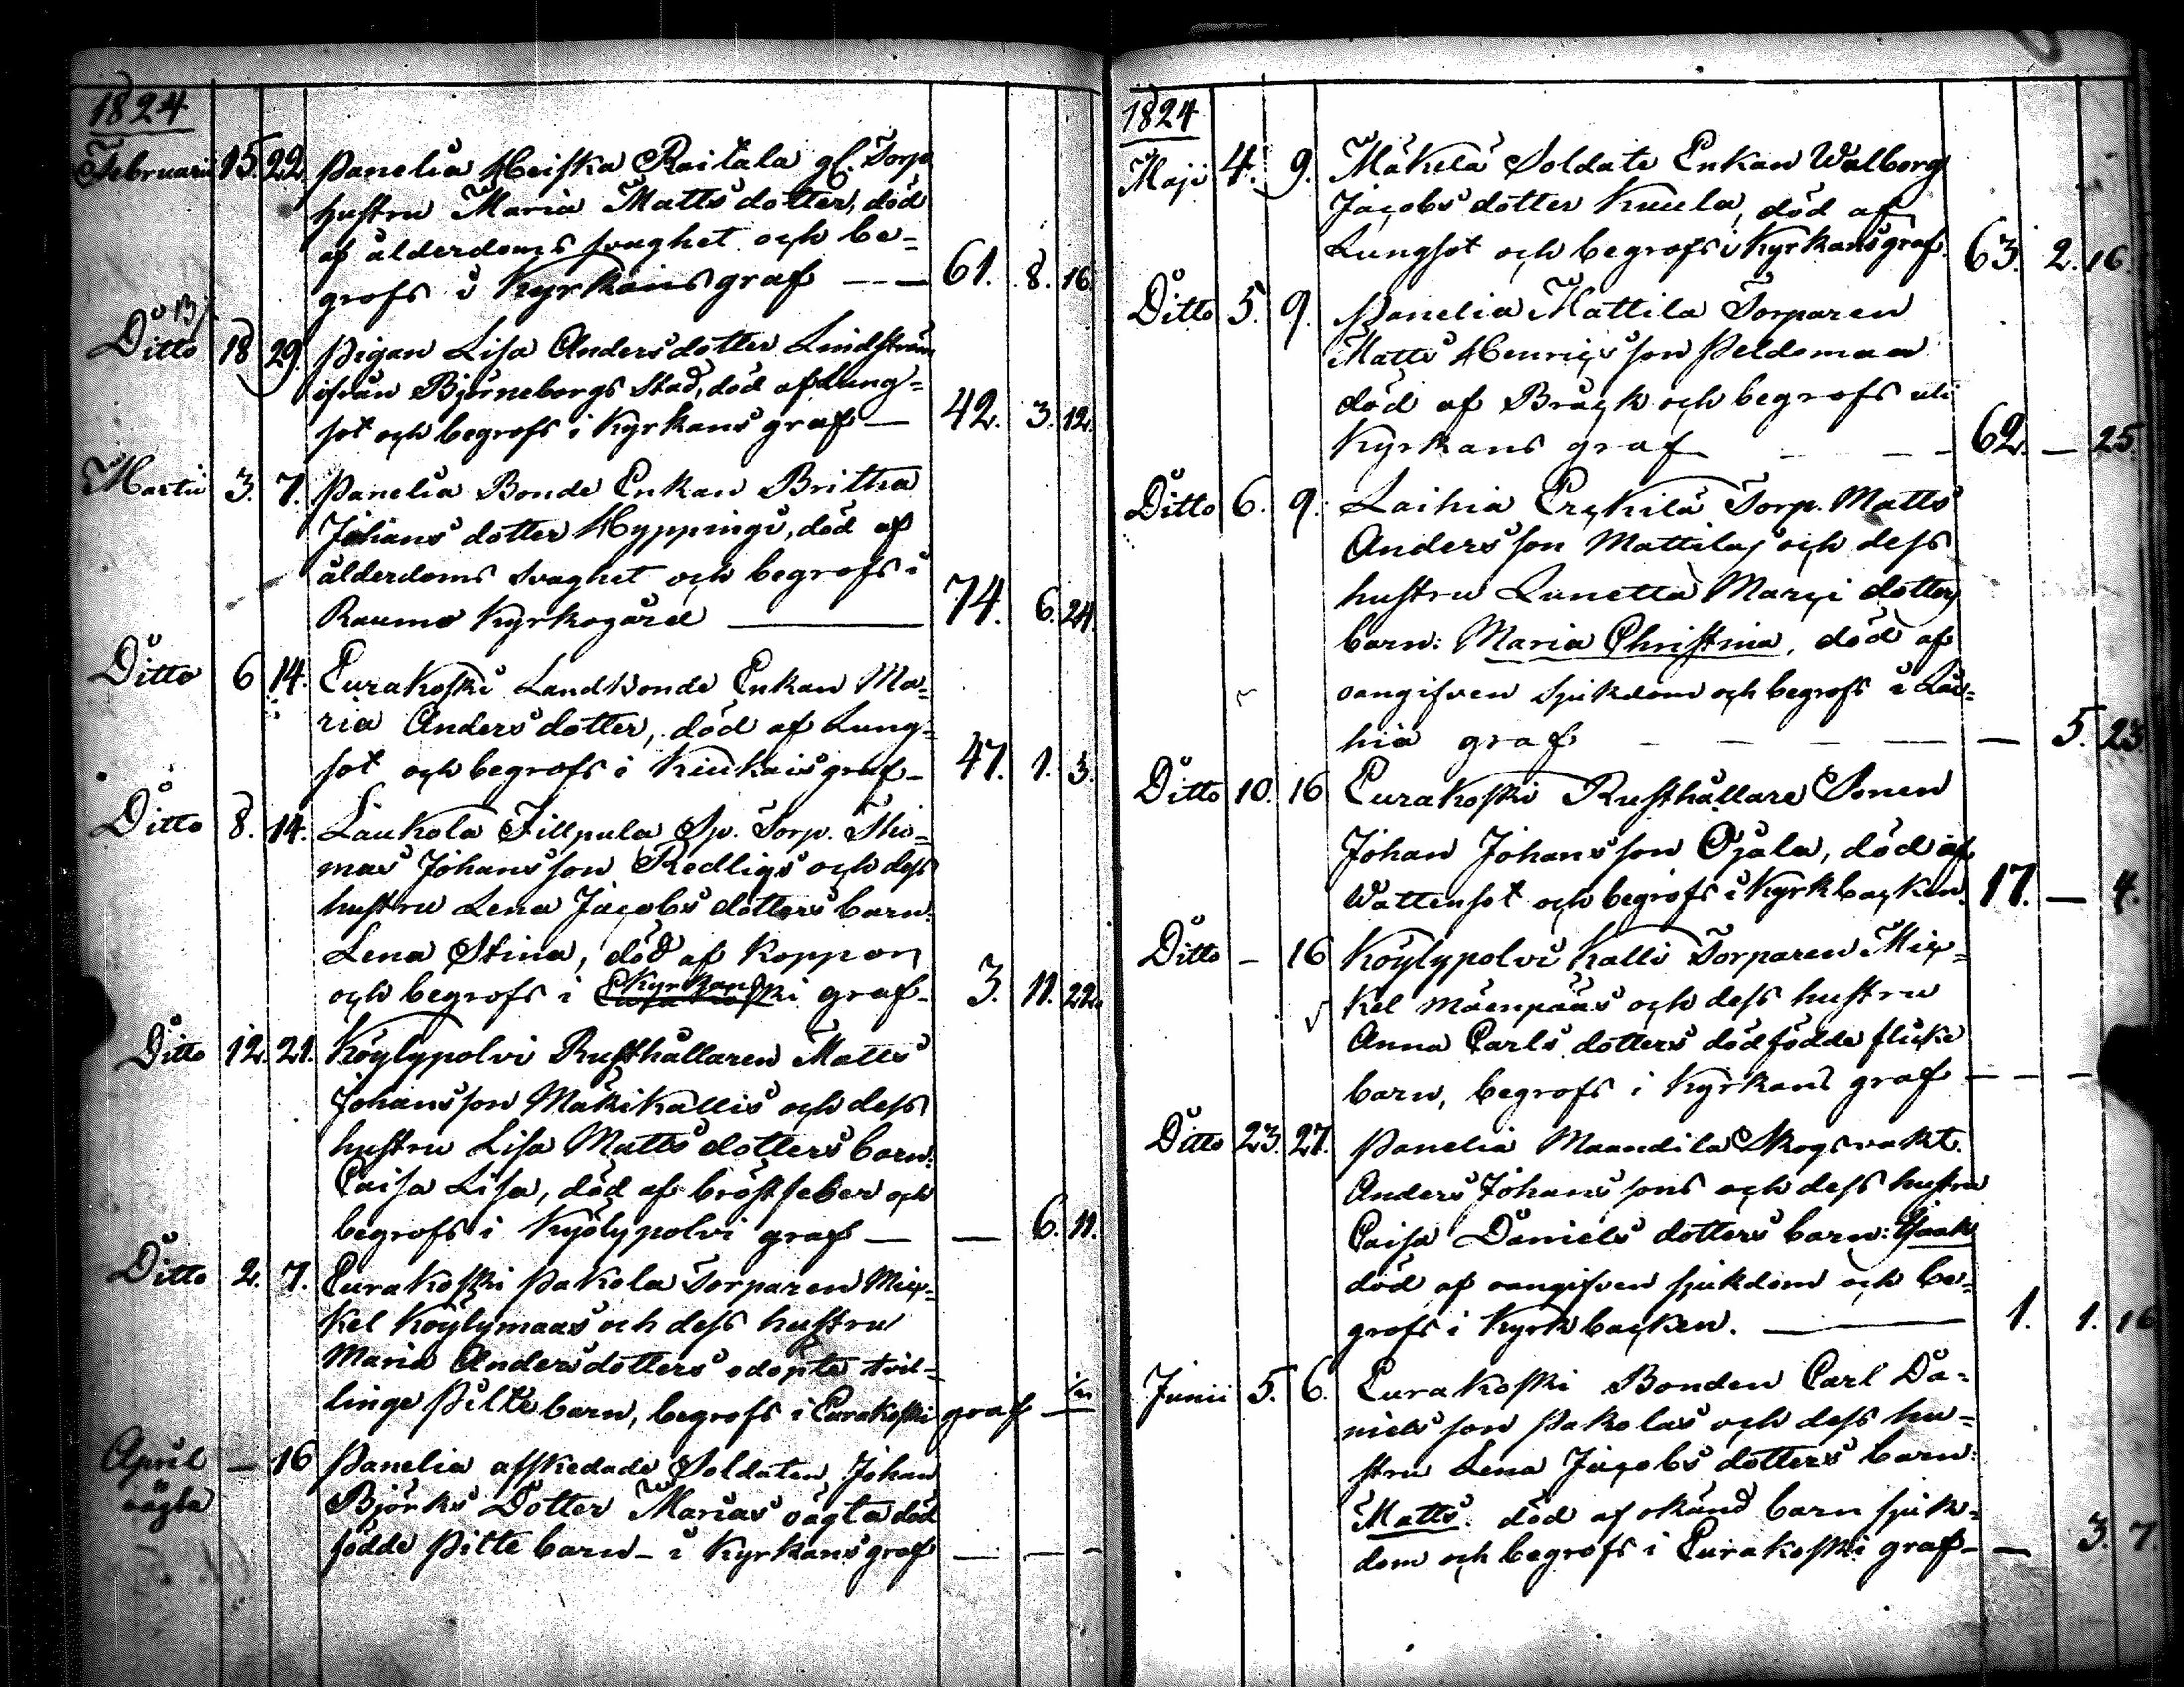 1824
Februarii 15. 22. Panelia Heiska Raitala gl. Torp.
hustru Maria Mattsdotter, död
af ålderdoms svaghet och be=
grofs i Kyrkans graf — — 61. 8. 16.
Ditto 18 29. Pigan Lisa Andersdotter Lindström
ifrån Björneborgs Stad, död af Lung=
sot och begrofs i Kyrkans graf — 42. 3. 12.
Martii 3. 7. Panelia Bonde Enkan Britha
Johans dotter Hyppingi, död af
ålderdoms svaghet och begrofs i
Raumo Kyrkogård — 74. 6. 24.
Ditto 6 14. Eurakoski Landbonde Enkan Ma=
ria Anders dotter, död af Lung=
sot och begrofs i Kiukais graf — 47. 1. 3.
Ditto 8. 14. Laukola Fillpula Sp. Torp. Tho=
mas Johansson Redligs och dess
hustru Lena Jacobs dotters barn:
Lena Stina, död af Koppor
och begrofs i Kyrkans graf — 3. 11. 22.
Ditto 12. 21.Köylypolvi Rusthållaren Matts
Johansson Mäkikallis och dess
hustru Lisa Matts dotters barn:
Caisa Lisa, död af bröstfeber och
begrofs i Kjölypolvi graf — — 6. 11.
Ditto 2. 7. Eurakoski Pakola Torparen Mic=
kel Köylymaas och dess hustru
Maria Andersdotters odöpte tvil=
linge Piltebarn, begrofs i Eurakoski graf —
April — 16 Panelia afskedade Soldaten Johan
oägta Björks Dotter Marias oägta död
födde Pilte barn — i Kyrkans graf — — —
1824
Maji 4. 9. Mäkelä Soldate Enkan Walborg
Jacobs dotter Kuula, död af
Lungsot och begrofs i Kyrkans graf. 63. 2. 16.
Ditto 5. 9. Panelia Mattila Torparen
Matts Henricsson Peldoman
död af Bråck och begrofs uti
Kyrkans graf — — 62. — 25.
Ditto 6. 9. Laihia Erckilä Torp. Matts
Andersson Mattilas och dess
hustru Lunetta Marci dotters
barn: Maria Christina, död af
oangifven sjukdom och begrofs i Lai=
hia graf — — — — — 5. 23.
Ditto 10. 16 Eurakoski Rusthållare Sonen
Johan Johansson Ojala, död af
Wattensot och begrofs i Kyrkbacken. 17. — 4.
Ditto — 16 Köylypolvi Kalli Torparen Mic=
kel Mäenpääs och dess hustru
Anna Carls dotters dödfödde flicke
barn, begrofs i Kyrkans graf — — —
Ditto 23. 27. Panelia Maandila Skogsvakt.
Anders Johanssons och dess hustru
Caisa Daniels dotters barn: Isaak
död af oangifven sjukdom och be=
grofs i Kyrkbacken. — 1. 1. 16
Junii 5. 6. Eurakoski Bonden Carl Da=
niels son Pakolas och dess hu=
stru Lena Jacobs dotters barn:
Matts. död af okänd barn sjuk=
dom och begrofs i Eurakoski graf — — 3. 7.